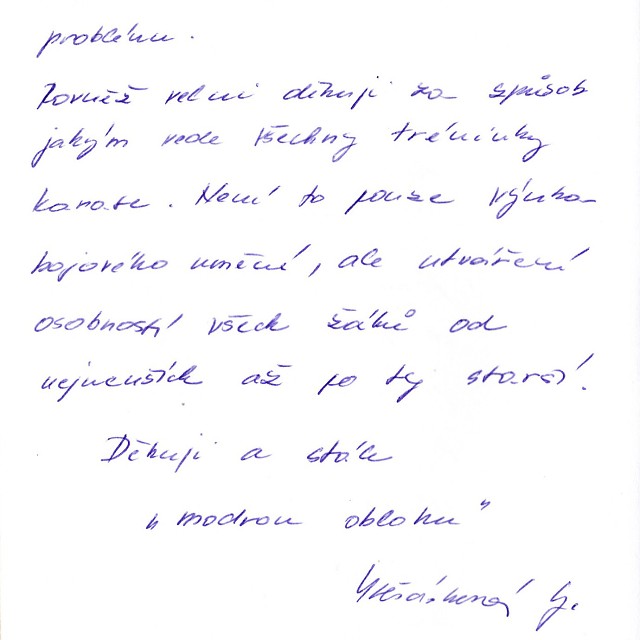 problému.
Rovněž velmi děkuji za způsob
jakým vede všechny tréninky
karate. Není to pouze výuka
bojového umění, ale utváření
osobností všech žáků od
nejmenších až po ty starší.
Děkuji a stále
"modrou oblohu"